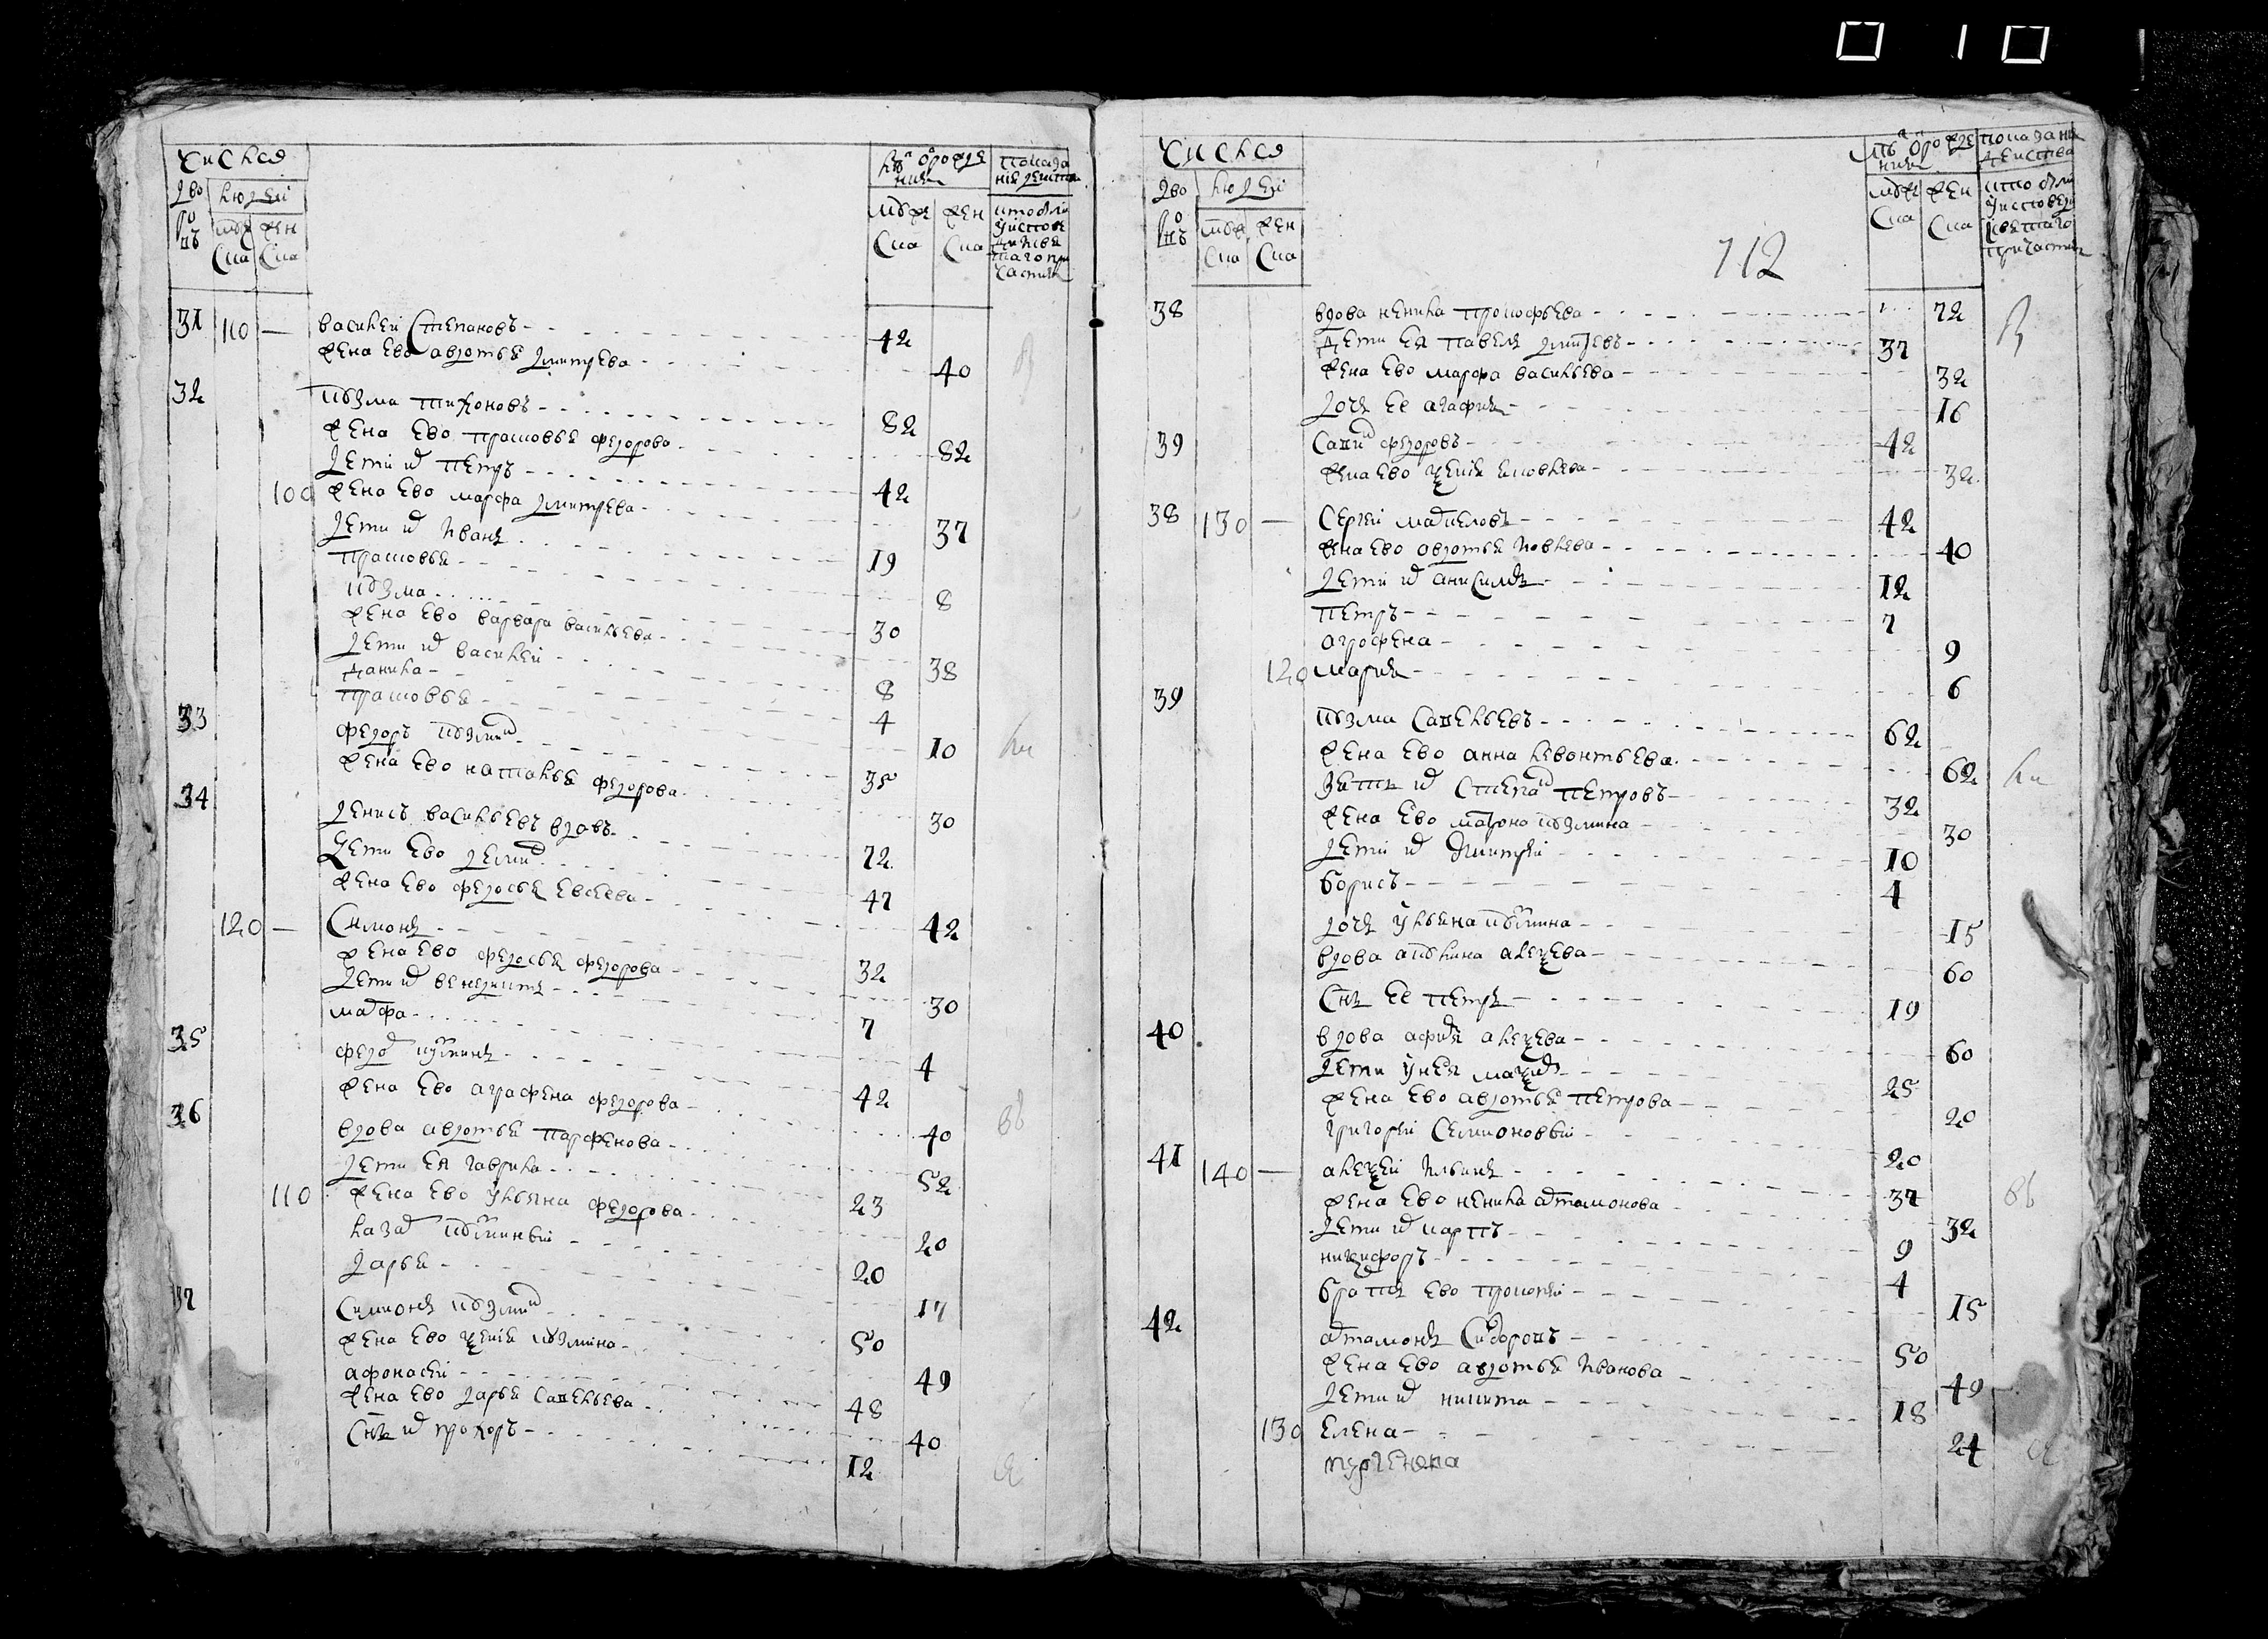 числа
дво ровъ
людеи
муже ска
жен ска
лѣтъ о рожде нии
муже ска
жен ска
показа ние деиства
кто были у исповеди и свѣтаго при частия
31 110 — василеи Степановъ 42
жена Ево авдотья дмитрева 40
32 кузма тихоновъ 82
жена Ево прасковья федорова 82
дети их петръ 42
100 жена Ево марфа дмитрева 37
дети их иванъ 19
прасковья 8
кузма 30
жена Ево варвара васильева 38
дети их василеи 8
данила 4
прасковья 10
33 федоръ кузмин 35
жена Ево наталья федорова 30
34 денисъ васильевъ вдовъ 72
дети Ево демид 47
жена Ево федосья Евсеева 42
120 — Симонъ 32
жена Ево федосья федорова 30
дети их венедиктъ 7
марфа 4
35 федор кузминъ 42
жена Ево аграфена федорова 40
36 вдова авдотья парфенова 52
дети Ея гаврила 23
110 жена Ево ульяна федорова 20
лазар кузминыи 20
дарья 17
37 Симионъ кузмин 50
жена Ево кузмина 49
афонасеи 48
жена Ево дарья Савельева 40
Снъ их прохоръ 12
числа
дво ровъ
людеи
муже ска
жен ска
лѣтъ о рожде нии
муже ска
жен ска
показание деиства
кто были у исповеди и светаго причастия
112
38 вдова ненила прокофьева 72
дети Ея павелъ дмитревъ 37
жена Ево марфа васильева 32
дочь Ее агафия 16
39 федоровъ 42
жена Ево яковлева 32
38 130 — Сергеи мануиловъ 42
жена Ево авдотья иовлева 40
дети их анисимъ 12
петръ 7
агрофена 9
120 мария 6
39 кузма Савельевъ 62
жена Ево анна левонтьева 62
зять их Степан петровъ 32
жена Ево матрона кузмина 30
дети их дмитреи 10
борисъ 4
дочь ульяна кузмина 15
вдова акулина алексева 60
Снъ Ее петръ 19
40 вдова алексева 60
дети у неи максим 25
жена Ево авдотья петрова 20
григореи Семионовыи 20
41 140 — алексеи ильинъ 37
жена Ево ненила артамонова 32
дети их карпъ 9
никифоръ 4
братъ Ево прокопеи 15
42 артамонъ Сидоровъ 50
жена Ево авдотья иванова 49
дети их никита 18
130 Елена 24